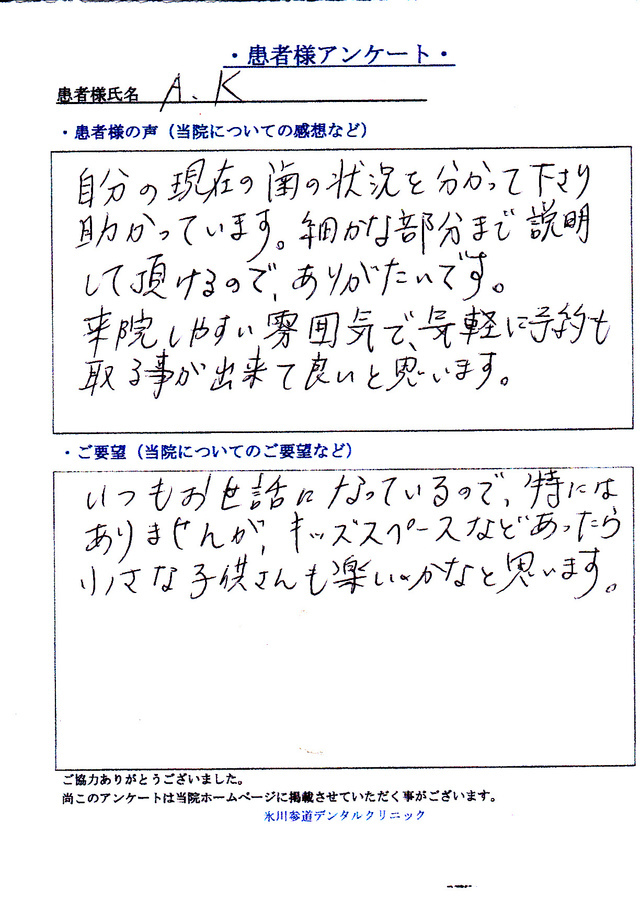 ・患者様アンケート・
患者様氏名 A.K
・患者様の声（当院についての感想など）
自分の現在の歯の状況を分かって下さり
助かっています。細かな部分まで説明
して頂けるので、ありがたいです。
来院しやすい雰囲気で、気軽に予約も
取る事が出来て良いと思います。
・ご要望（当院についてのご要望など）
いつもお世話になっているので、特には
ありませんが、キッズスペースなどあったら
小さな子供さんも楽しいかなと思います。
ご協力ありがとうございました。
尚このアンケートは当院ホームページに掲載させていただく事がございます。
氷川参道デンタルクリニック